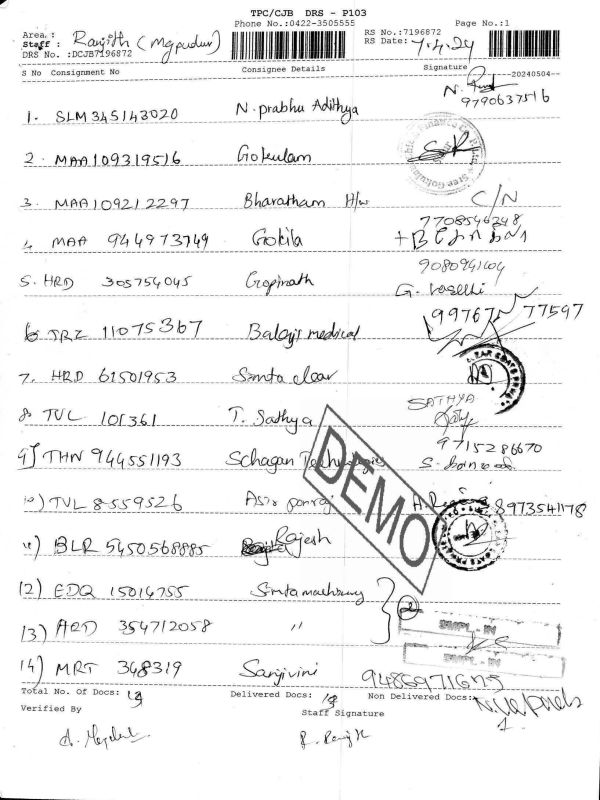 TPC/CJB DRS - P103
Phone No.:0422-3505555
Page No.:1
Area. :
Staff : Ranjith (Mgpudur)
DRS No. :DCJB7196872
RS No.:7196872
RS Date:
S No Consignment No Consignee Details Signature
20240504
1. SLM345143020 N. prabhu Adithya
9790637516
2. MAA109319516 Gokulam
3. MAA109212297 Bharatham H/w C/N
7708546348
4. MAA 944973749 Gokila
9080941404
5. HRD 305754045 Gopinath
6 TRZ 11075367 Balaji medical 99767 77597
7. HRD 61501953 Simta clear
8. TVL 101361 T. Sathya SATHYA
9715286670
9) THN 944551193 Schagan Technologies
10) TVL 8559526 Asir ponraj 8973541178
11) BLR 5450568885 Rajesh
12) EDQ 15014755 Simta machinery
13) ARD 354712058 "
14) MRT 348319 Sanjivini 9486971675
DEMO
SIMPL - IN
SIMPL - IN
Total No. Of Docs: Delivered Docs: Non Delivered Docs:
Verified By Staff Signature
R. Ranjith